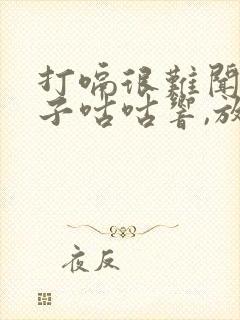 打嗝很難聞
子咕咕響,放
夜反